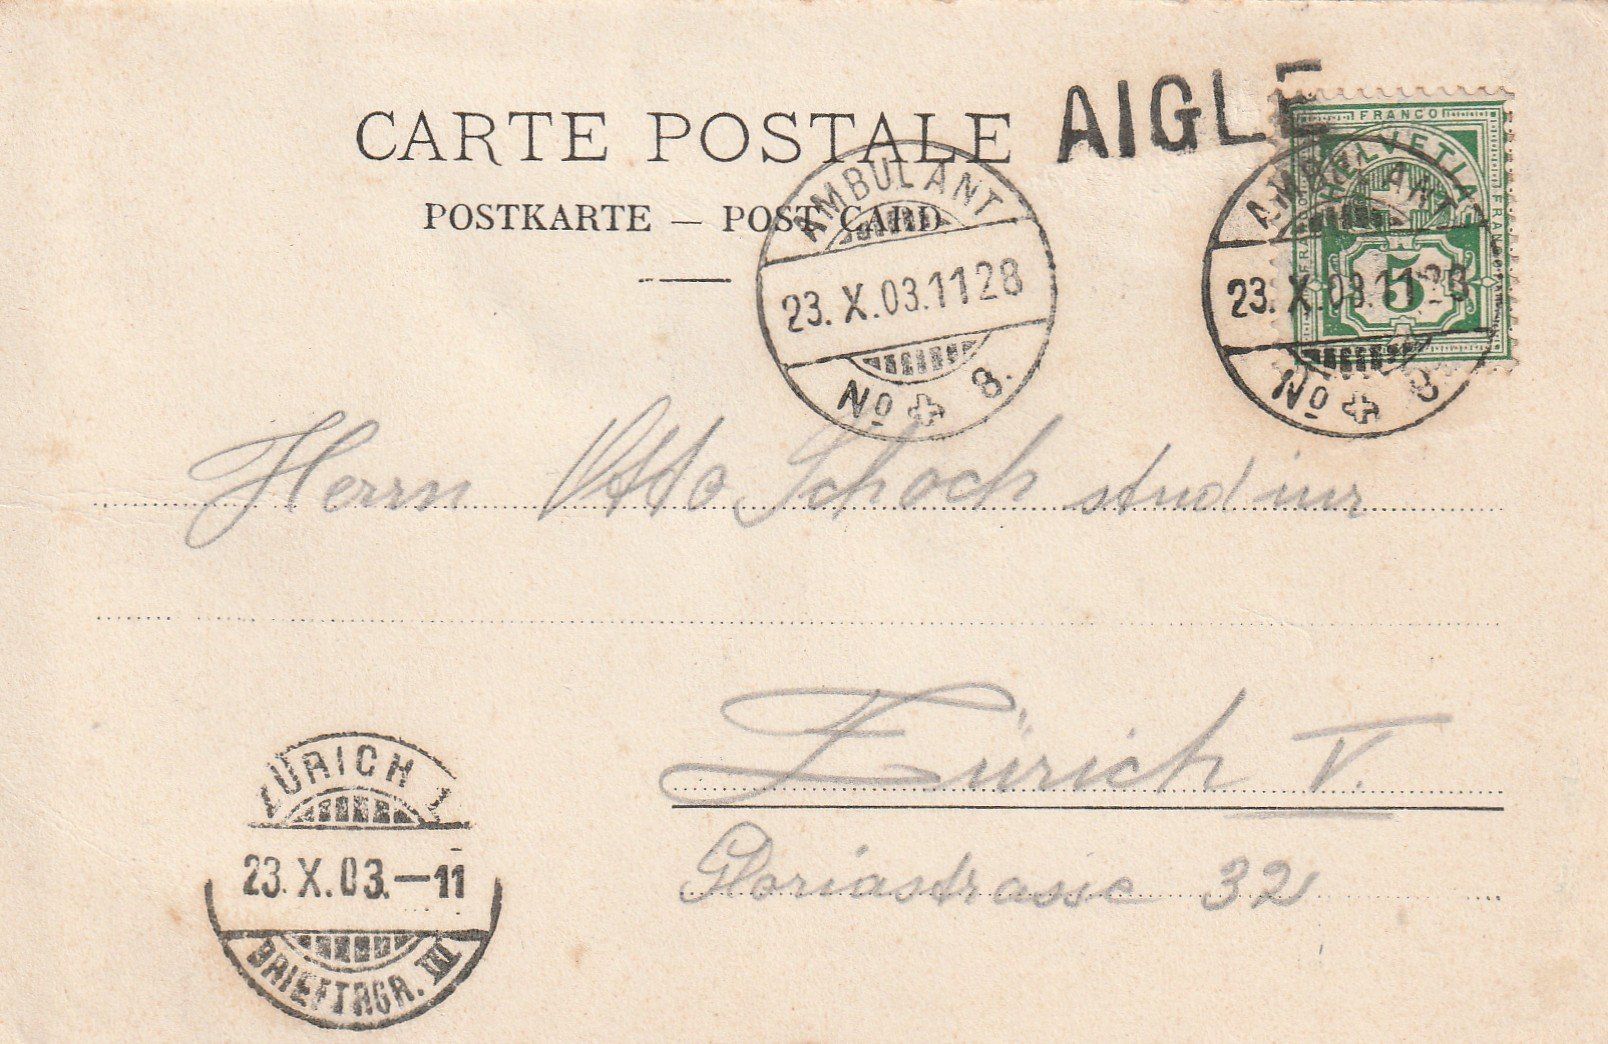 CARTE POSTALE
POSTKARTE — POST CARD
AIGLE
FRANCO
HELVETIA
FRANCO
FRANCO
5
AMBULANT
23.X.03.1128
No 8.
AMBULANT
23.X.03.1128
No 8
Herrn Otto Schoch stud iur
Zürich V.
Gloriastrasse 32
ZÜRICH 1
23.X.03.—11
BRIEFTRGR. III